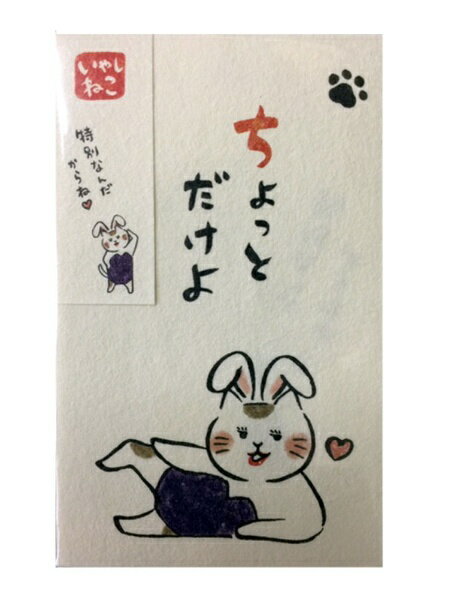 いやし
ねこ
特別なんだ
からね
ちょっと
だけよ